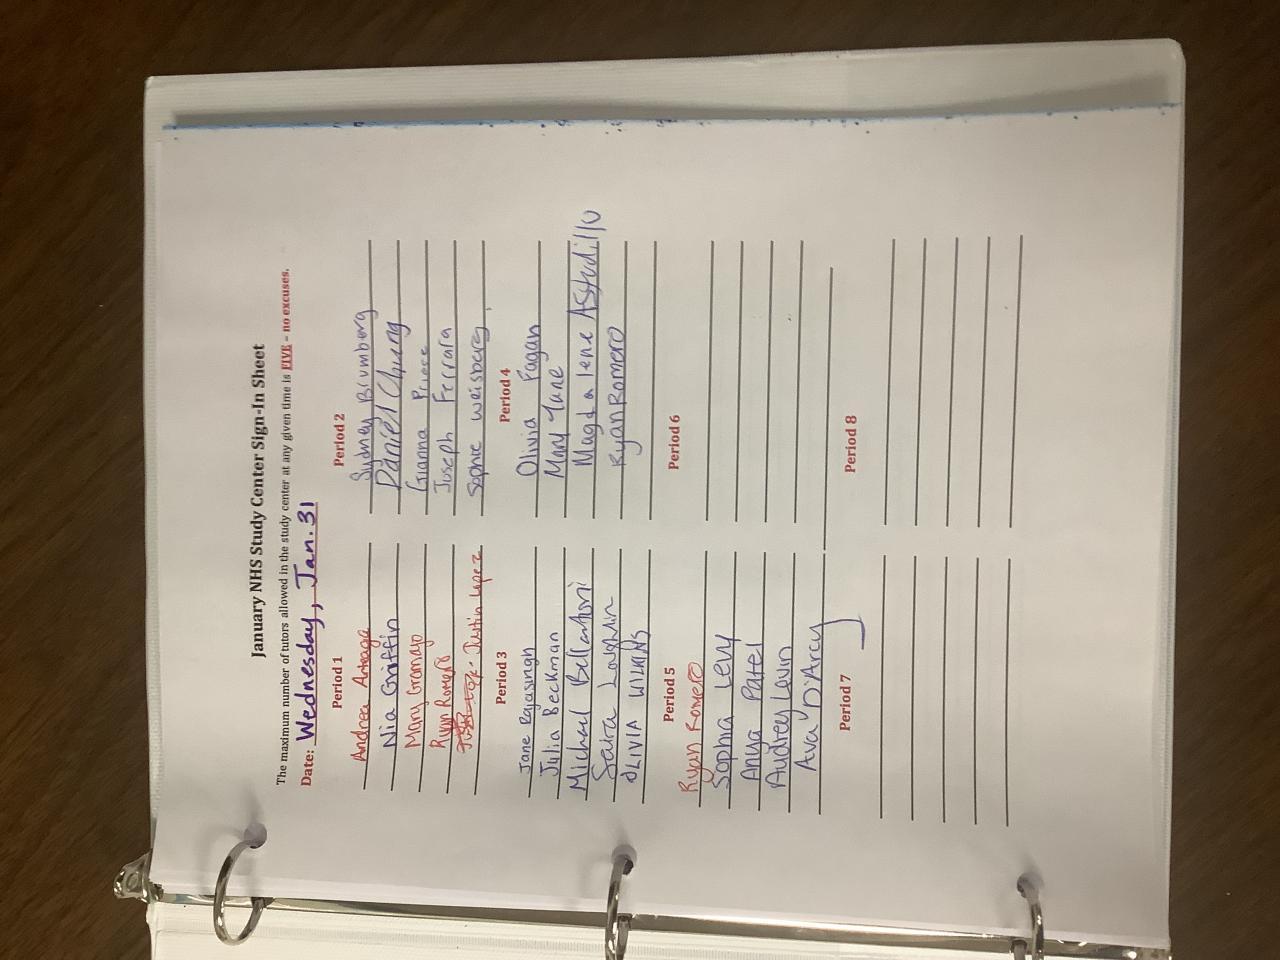 January NHS Study Center Sign-In Sheet
The maximum number of tutors allowed in the study center at any given time is FIVE – no excuses.
Date: Wednesday, Jan. 31
Period 1
Andrea Arteaga
Nia Griffin
Mary Gramajo
Ryan Romero
Justin Lopez
Period 2
Sydney Brumberg
Daniel Chung
Gianna Pierce
Joseph Ferrara
Sophie Weisberg
Period 3
Jane Rajasingh
Julia Beckman
Michael
Saira Loughlin
OLIVIA WILKINS
Period 4
Olivia Fagan
Mary Jane
Magdalene Astudillo
Ryan Romero
Period 5
Ryan Romero
Sophia Levy
Anya Patel
Audrey Levin
Ava D'Arcy
Period 6
Period 7
Period 8